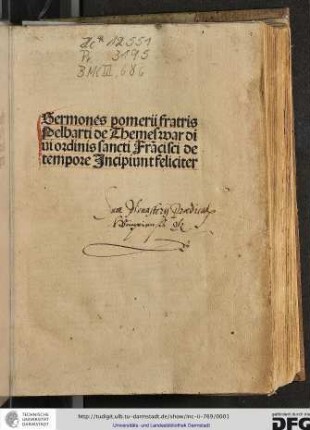 Zc* 12551
Pr 3195
BMC III, 686
Sermones pomerii fratris
Pelbarti de Themeswar di
ui ordinis sancti Frācisci de
tempore Incipiunt feliciter
Monasterij
TECHNISCHE
UNIVERSITÄT
DARMSTADT
http://tudigit.ulb.tu-darmstadt.de/show/inc-ii-769/0001
Universitäts- und Landesbibliothek Darmstadt
gefördert durch die
DFG